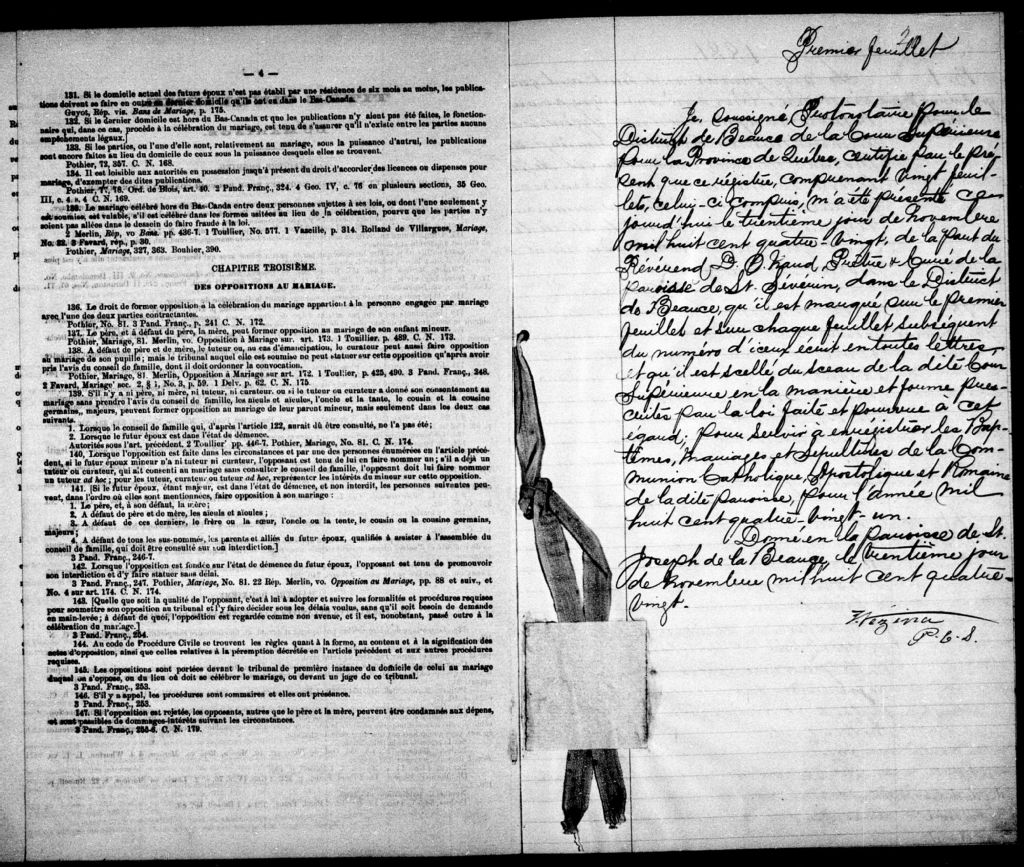 — 4 —
131. Si le domicile actuel des futurs époux n'est pas établi par une résidence de six mois au moins, les publica-
tions doivent se faire en outre au dernier domicile qu'ils ont eu dans le Bas-Canada.
Guyot, Rép. vis. Bans de Mariage, p. 175.
132. Si le dernier domicile est hors du Bas-Canada et que les publications n'y aient pas été faites, le fonction-
naire qui, dans ce cas, procède à la célébration du mariage, est tenu de s'assurer qu'il n'existe entre les parties aucuns
empêchements légaux.
133. Si les parties, ou l'une d'elles, sont, relativement au mariage, sous la puissance d'autrui, les publications
sont encore faites au lieu du domicile de ceux sous la puissance desquels elles se trouvent.
Pothier, 72, 357. C. N. 168.
134. Il est loisible aux autorités en possession jusqu'à présent du droit d'accorder des licences ou dispenses pour
mariage, d'exempter des dites publications.
Pothier, 77, 78. Ord. de Blois, art. 40. 2 Pand. Franç., 324. 4 Geo. IV, c. 76 en plusieurs sections, 35 Geo.
III, c. 4. s, 4 C. N. 169.
135. Le mariage célébré hors du Bas-Canda entre deux personnes sujettes à ses lois, ou dont l'une seulement y
est soumise, est valable, s'il est célébré dans les formes usitées au lieu de la célébration, pourvu que les parties n'y
soient pas allées dans le dessein de faire fraude à la loi.
2 Merlin, Rép, vo Bans. pp. 436-7. 1 Toullier, No. 577. 1 Vazeille, p. 314. Rolland de Villargues, Mariage,
No. 32. 3 Favard, rép., p. 30.
Pothier, Mariage, 327, 363. Bouhier, 390.
CHAPITRE TROISIÈME.
DES OPPOSITIONS AU MARIAGE.
136. Le droit de former opposition à la célébration du mariage appartient à la personne engagée par mariage
avec l'une des deux parties contractantes.
Pothier, No. 81. 3 Pand. Franç., p. 241 C. N. 172.
137. Le père, et à défaut du père, la mère, peut former opposition au mariage de son enfant mineur.
Pothier, Mariage, 81. Merlin, vo. Opposition à Mariage sur. art. 173. 1 Touillier, p. 489. C. N. 173.
138. A défaut de père et de mère, le tuteur ou, au cas d'émancipation, le curateur peut aussi faire opposition
au mariage de son pupille; mais le tribunal auquel elle est soumise ne peut statuer sur cette opposition qu'après avoir
pris l'avis du conseil de famille, dont il doit ordonner la convocation.
Pothier, Mariage, 81. Merlin, Opposition à Mariage sur art. 172. 1 Toullier, p. 425, 490. 3 Pand. Franç., 248.
2 Favard, Mariage' sec. 2, § 1, No. 3, p. 59. 1 Delv. p. 62. C. N. 175.
139. S'il n'y a ni père, ni mère, ni tuteur, ni curateur, ou si le tuteur ou curateur a donné son consentement au
mariage sans prendre l'avis du conseil de famille, les aïeuls et aïeules, l'oncle et la tante, le cousin et la cousine
germains, majeurs, peuvent former opposition au mariage de leur parent mineur, mais seulement dans les deux cas
suivants.
1. Lorsque le conseil de famille qui, d'après l'article 122, aurait dû être consulté, ne l'a pas été;
2. Lorsque le futur époux est dans l'état de démence.
Autorités sous l'art. précédent. 2 Toullier' pp. 446-7. Pothier, Mariage, No. 81. C. N. 174.
140. Lorsque l'opposition est faite dans les circonstances et par une des personnes énumérées en l'article précé-
dent, si le futur époux mineur n'a ni tuteur ni curateur, l'opposant est tenu de lui en faire nommer un; s'il a déjà un
tuteur ou curateur, qui ait consenti au mariage sans consulter le conseil de famille, l'opposant doit lui faire nommer
un tuteur ad hoc; pour les tuteur, curateur ou tuteur ad hoc, représenter les intérêts du mineur sur cette opposition.
141. [Si le futur époux, étant majeur, est dans l'état de démence, et non interdit, les personnes suivantes peu-
vent, dans l'ordre où elles sont mentionnées, faire opposition à son mariage:
1. Le père, et, à son défaut, la mère;
2. A défaut de père et de mère, les aïeuls et aïeules;
3. A défaut de ces derniers, le frère ou la sœur, l'oncle ou la tante, le cousin ou la cousine germains,
majeurs;
4. A défaut de tous les sus-nommés, les parents et alliés du futur époux, qualifiés à assister à l'assemblée du
conseil de famille, qui doit être consulté sur son interdiction.]
3 Pand. Franç., 246-7.
142. Lorsque l'opposition est fondée sur l'état de démence du futur époux, l'opposant est tenu de promouvoir
son interdiction et d'y faire statuer sans délai.
3 Pand. Franç., 247. Pothier, Mariage, No. 81. 22 Rép. Merlin, vo. Opposition au Mariage, pp. 88 et suiv., et
No. 4 sur art. 174. C. N. 174.
143. [Quelque soit la qualité de l'opposant, c'est à lui à adopter et suivre les formalités et procédures requises
pour soumettre son opposition au tribunal et l'y faire décider sous les délais voulus, sans qu'il soit besoin de demande
en main-levée; à défaut de quoi, l'opposition est regardée comme non avenue, et il est, nonobstant, passé outre à la
célébration du mariage.]
3 Pand. Franç., 254.
144. Au code de Procédure Civile se trouvent les règles quant à la forme, au contenu et à la signification des
actes d'opposition, ainsi que celles relatives à la péremption décrétée en l'article précédent et aux autres procédures
requises.
145. Les oppositions sont portées devant le tribunal de première instance du domicile de celui au mariage
duquel on s'oppose, ou du lieu où doit se célébrer le mariage, ou devant un juge de ce tribunal.
3 Pand. Franç., 253.
146. S'il y a appel, les procédures sont sommaires et elles ont préséance.
3 Pand. Franç., 253.
147. Si l'opposition est rejetée, les opposants, autres que le père et la mère, peuvent être condamnés aux dépens,
et sont passibles de dommages-intérêts suivant les circonstances.
3 Pand. Franç., 255-6. C. N. 179.
Premier feuillet
Je, soussigné, Protonotaire pour le
District de Beauce de la Cour Supérieure
pour la Province de Québec, certifie par le pré-
sent que ce régistre, comprenant vingt feuil-
lets, celui-ci compris, m'a été présenté ce
jourd'hui le trentième jour de novembre
mil huit cent quatre-vingt, de la part du
Révérend D. O. Naud, Prêtre & Curé de la
paroisse de St. Séverin, dans le District
de Beauce, qu'il est marqué sur le premier
feuillet et sur chaque feuillet subséquent
du numéro d'iceux écrit en toutes lettres,
et qu'il est scellé du sceau de la dite Cour
Supérieure en la manière et forme pres-
crites par la loi faite et pourvue à cet
égard; pour servir à enregistrer les Bap-
têmes, Mariages et Sépultures de la Com-
munion Catholique, Apostolique et Romaine
de la dite paroisse, pour l'année mil
huit cent quatre-vingt-un.
Donné en la paroisse de St.
Joseph de la Beauce, le trentième jour
de novembre mil huit cent quatre-
vingt.
Vézina
P. C. S.